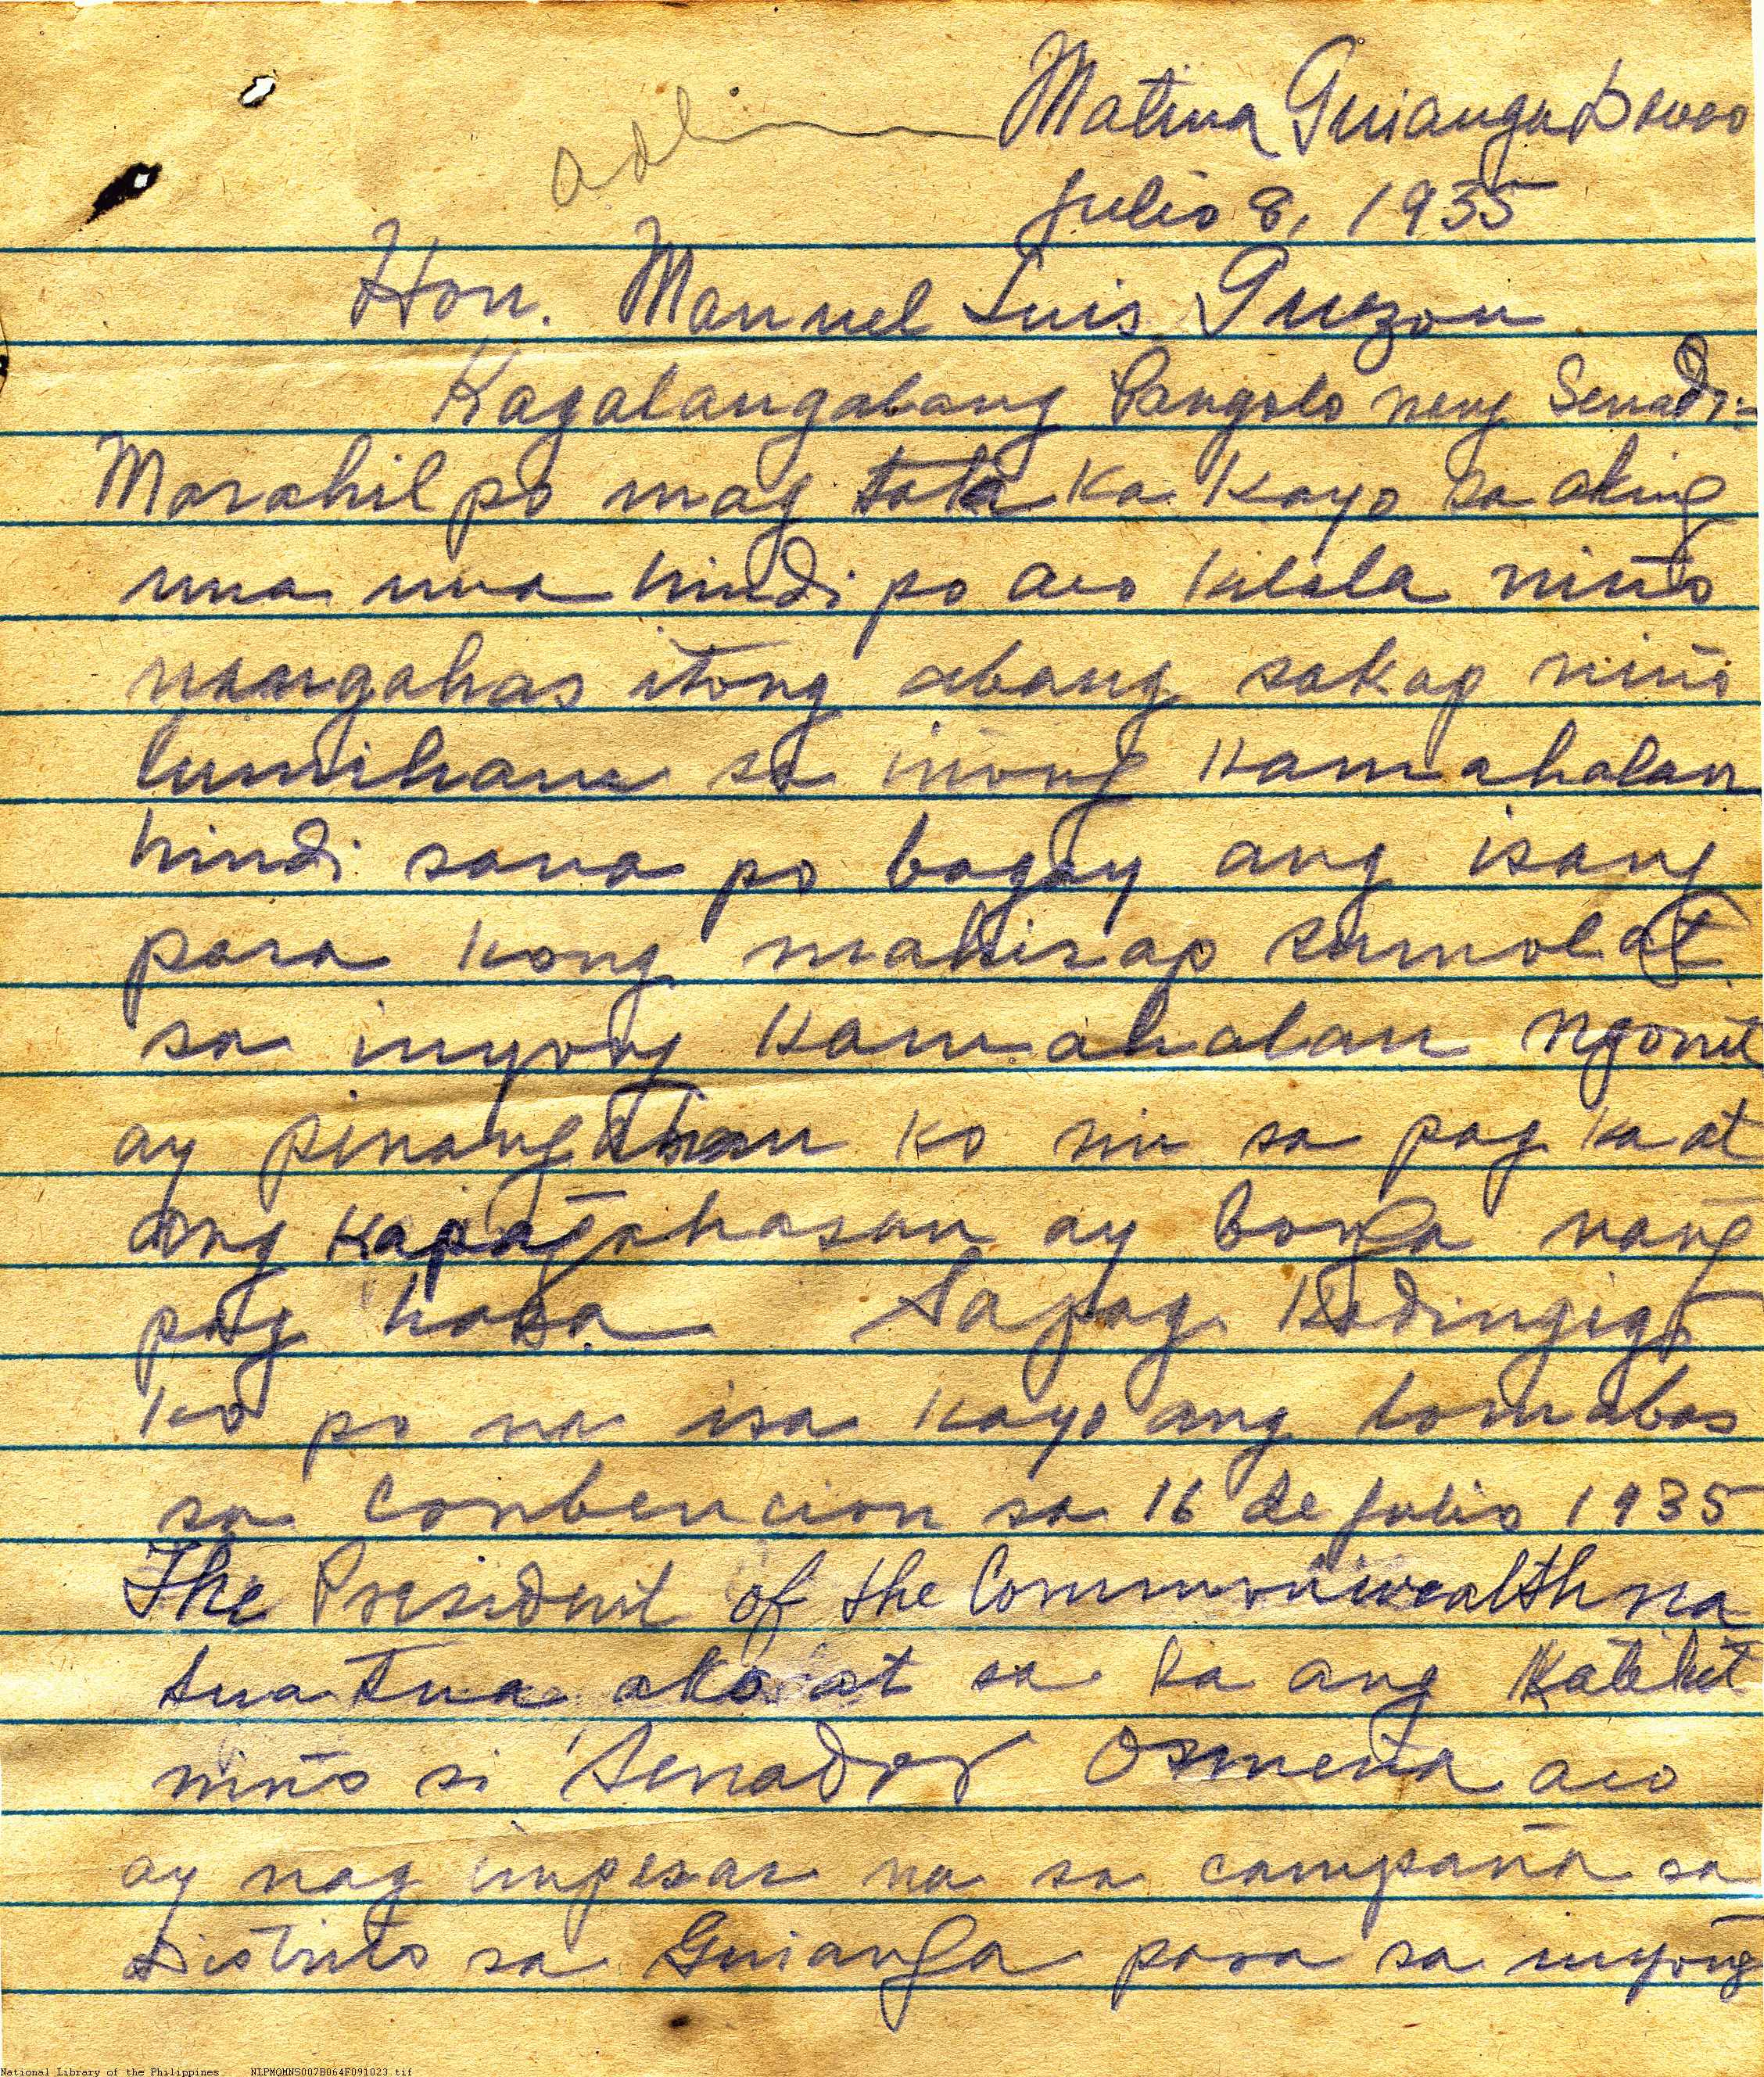 Matina Guianga Davao
Julio 8, 1935
Hon. Manuel Luis Quezon
Kagalangabang Pangolo neng Senado:-
Marahil po mag tata ka kayo sa aking
una una hindi po aco kilala niño
nangahas itong abang sakop niño
lumiham sa iniong Kamahalan
hindi sana po bagay ang isang
para kong mahirap sumolat
sa inyong Kamahalan ngonit
ay pinangahasan ko nin sa pag ka at
ang kapagahasan ay bonga nang
pag hasa Sapag Kadingig
ko po na isa kayo ang lomabas
sa Conbencion sa 16 de Julio 1935
The President of the Commonwealth na
tua tua ako at sa ka ang Katikit
niño si Senador Osmeña aco
ay nag impesar na sa campaña sa
Distrito sa Guianga para sa inyong
National Library of the Philippines NLPMQMNS007B064F091023.tif